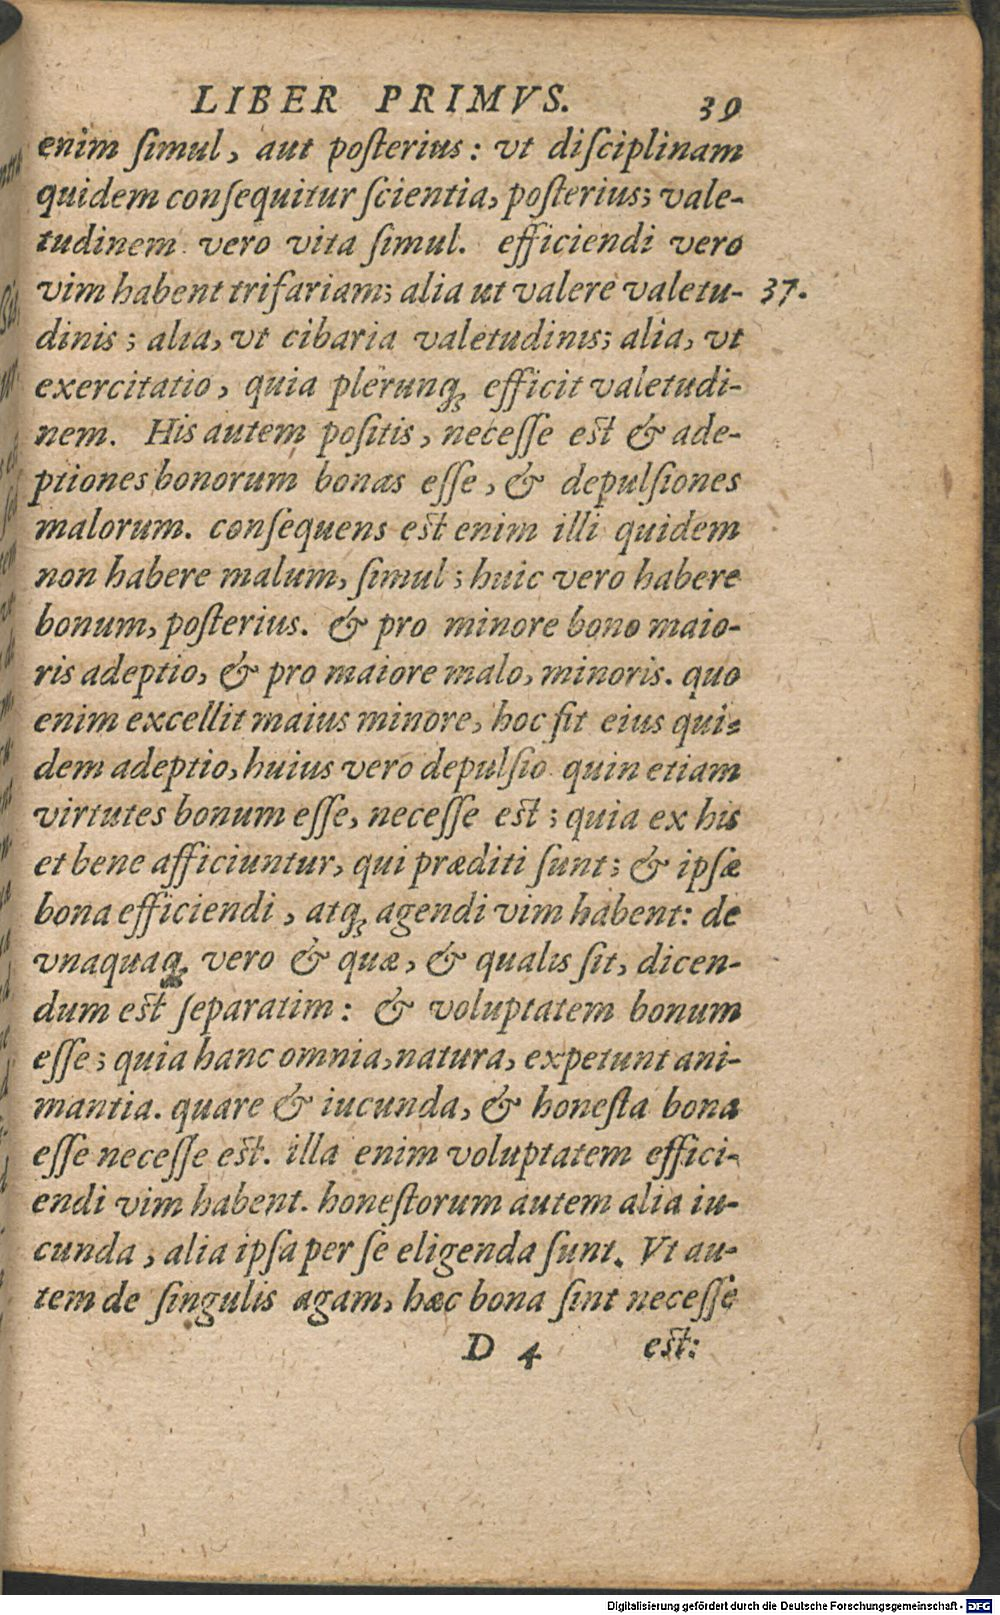 LIBER PRIMVS. 39
enim ſimul, aut poſterius: vt diſciplinam
quidem conſequitur ſcientia, poſterius; vale-
tudinem vero vita ſimul. efficiendi vero
vim habent trifariam; alia ut valere valetu- 37.
dinis; alia, vt cibaria valetudinis; alia, vt
exercitatio, quia plerunq; efficit valetudi-
nem. His autem poſitis, neceſſe eſt & ade-
ptiones bonorum bonas eſſe, & depulſiones
malorum. conſequens eſt enim illi quidem
non habere malum, ſimul; huic vero habere
bonum, poſterius. & pro minore bono maio-
ris adeptio, & pro maiore malo, minoris. quo
enim excellit maius minore, hoc fit eius qui-
dem adeptio, huius vero depulſio quin etiam
virtutes bonum eſſe, neceſſe eſt; quia ex his
et bene afficiuntur, qui præditi ſunt; & ipſæ
bona efficiendi, atq; agendi vim habent: de
vnaquaq; vero & quæ, & qualis ſit, dicen-
dum eſt ſeparatim: & voluptatem bonum
eſſe; quia hanc omnia, natura, expetunt ani-
mantia. quare & iucunda, & honeſta bona
eſſe neceſſe eſt. illa enim voluptatem effici-
endi vim habent. honeſtorum autem alia iu-
cunda, alia ipſa per ſe eligenda ſunt. Vt au-
tem de ſingulis agam, hæc bona ſint neceſſe
D 4 eſt:
Digitalisierung gefördert durch die Deutsche Forschungsgemeinschaft - DFG